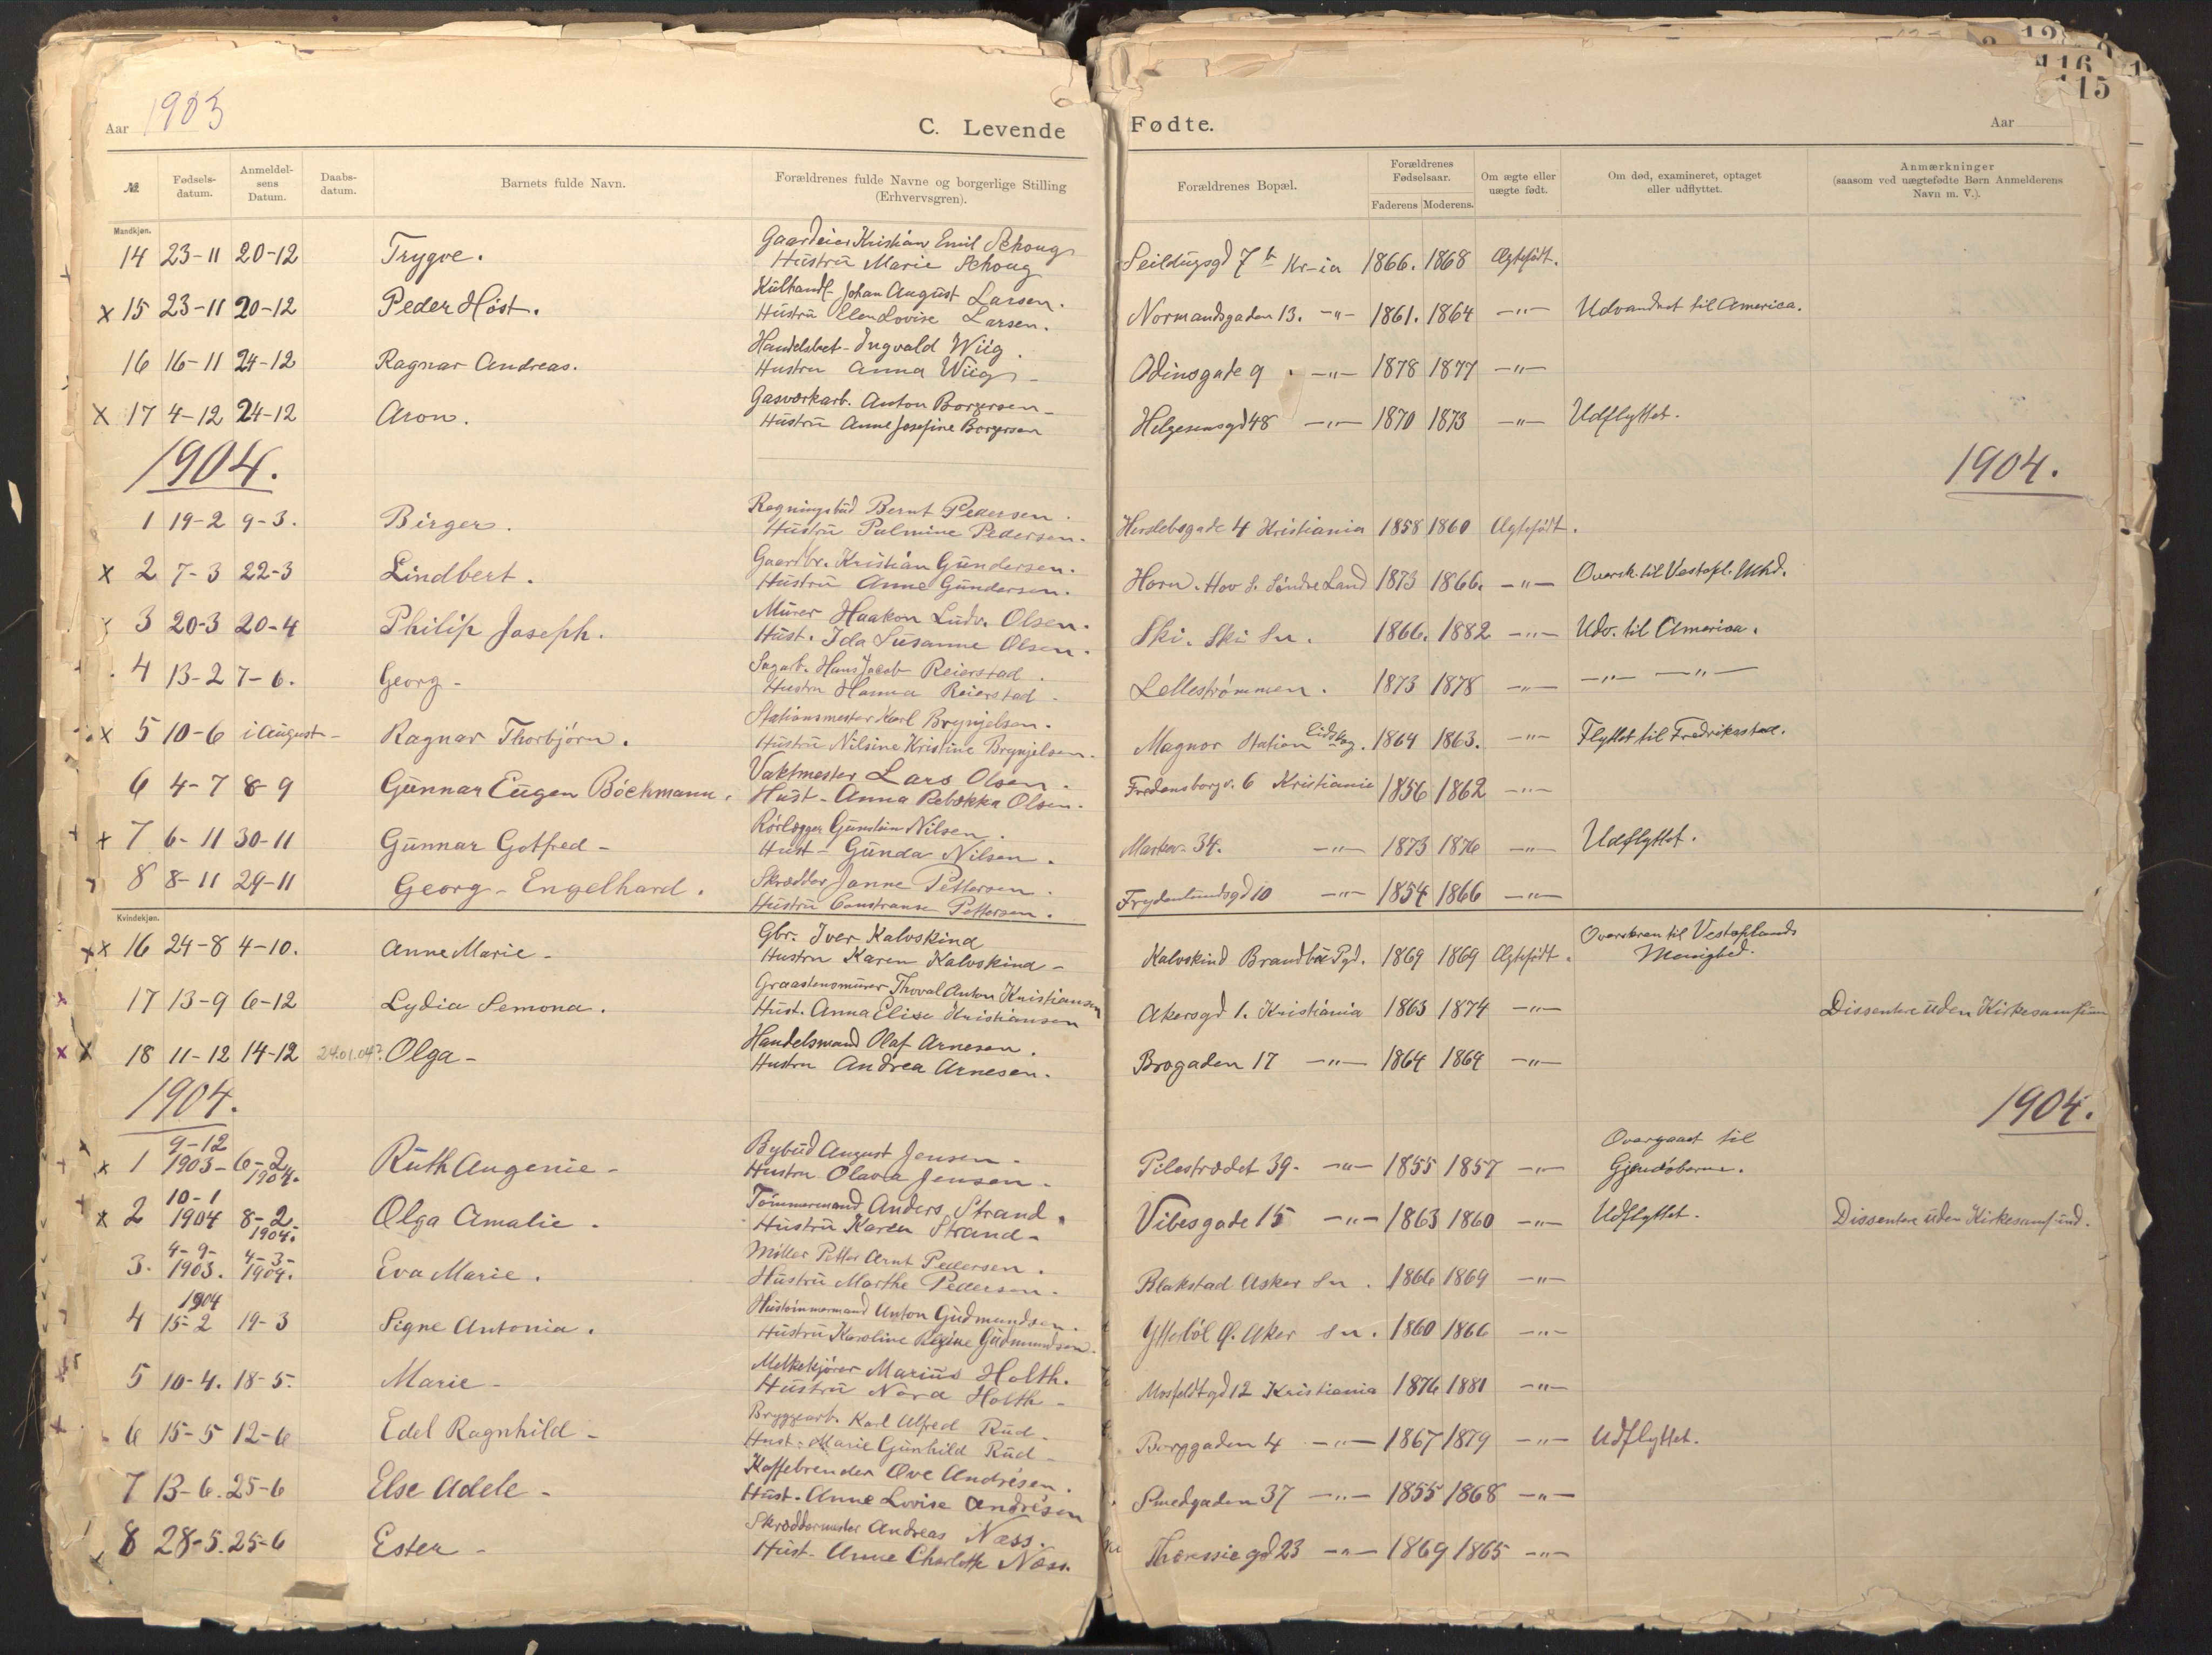 Aar 1903
C. Levende Fødte.
Aar
115
116
№ Fødsels-datum. Anmeldel-sens Datum. Daabs-datum. Barnets fulde Navn. Forældrenes fulde Navne og borgerlige Stilling (Erhvervsgren). Forældrenes Bopæl. Forældrenes Fødselsaar. Faderens Moderens. Om ægte eller uægte født. Om død, examineret, optaget eller udflyttet. Anmærkninger (saasom ved uægtefødte Børn Anmelderens Navn m. V.).
Mandkjøn.
14 23-11 20-12 Trygve. Gaardeier Kristian Emil Schoug
Hustru Marie Schoug Seildugsgd 7b Kr-ia 1866. 1868 Ægtefødt.
x 15 23-11 20-12 Peder Høst. Kulhandl- Johan August Larsen.
Hustru Elen Lovise Larsen. Normandsgaden 13. -"- 1861. 1864 -"- Udvandret til America.
16 16-11 24-12 Ragnar Andreas. Handelsbet- Ingvald Wiig.
Hustru Anna Wiig- Odinsgade 9 -"- 1878 1877 -"-
x 17 4-12 24-12 Aron. Gasværkarb. Anton Borgersen-
Hustru Anne Josefine Borgersen Helgesensgd 48 -"- 1870 1873 -"- Udflyttet.
1904. 1904.
1 19-2 9-3. Birger. Regningsbud Bernt Pedersen.
Hustru Palmine Pedersen. Herslebsgade 4 Kristiania 1858 1860 Ægtefødt.
x 2 7-3 22-3 Lindbert. Gaardbr. Kristian Gundersen.
Hustru Anne Gundersen. Horn. Hov S. Søndre Land 1873 1866. -"- Oversk. til Vestopl. Mhd.
3 20-3 20-4 Philip Joseph. Murer Haakon Ludv. Olsen.
Hust. Ida Susanne Olsen. Ski. Ski Sn. 1866. 1882 -"- Udv. til America.
4 13-2 7-6. Georg- Sagarb. Hans Jacob Reierstad.
Hustru Hanna Reierstad- Lellestrømmen. 1873 1878 -"- -"- -"-
x 5 10-6 i August- Ragnar Thorbjørn. Stationsmester Karl Brynjelsen.
Hustru Nilsine Kristine Brynjelsen. Magnor Station Eidskog. 1864 1863. -"- Flyttet til Fredrikstad.
6 4-7 8-9 Gunnar Eugen Bøckmann. Vaktmester Lars Olsen.
Hust- Anna Rebekka Olsen. Fredensborgv. 6 Kristiania 1856 1862 -"-
x 7 6-11 30-11 Gunnar Gotfred- Rørlægger Gunstein Nilsen.
Hust- Gunda Nilsen. Markv- 34. -"- 1873 1876 -"- Udflyttet.
8 8-11 29-11 Georg-Engelhard. Skrædder Janne Pettersen.
Hustru Constranse Pettersen. Frydenlundsgd 10 -"- 1854 1866 -"-
Kvindekjøn.
x 16 24-8 4-10. Anne Marie- Gbr. Iver Kalvskind
Hustru Karen Kalvskind- Kalvskind Brandbu Pgd. 1869 1869 Ægtefødt. Overskreven til Vestoplands Menighed.
x 17 13-9 6-12 Lydia Semona. Graastensmurer Thoval Anton Kristiansen
Hust. Anna Elise Kristiansen Akersgd 1. Kristiania 1863 1874 -"- Dissentere uden Kirkesamfun
x x 18 11-12 14-12 24.01.04? Olga- Handelsmand Olaf Arnesen.
Hustru Andrea Arnesen. Brogaden 17 -"- 1864 1869 -"-
1904. 1904.
x 1 9-12 1903- 6-2 1904. Ruth Augenie- Bybud August Jensen-
Hustru Olava Jensen. Pilestrædet 39- -"- 1855 1857 -"- Overgaaet til Gjendøberne.
x 2 10-1 1904 8-2 1904. Olga Amalie. Tømmermand Anders Strand.
Hustru Karen Strand- Vibesgade 15 -"- 1863 1860 -"- Udflyttet. Dissentere uden Kirkesamfund.
3. 4-9- 1903. 4-3- 1904. Eva Marie. Møller Petter Arnt Pedersen.
Hustru Marthe Pedersen. Blakstad Asker Sn. 1866 1869 -"-
4 1904 15-2 19-3 Signe Antonia. Hustømmermand Anton Gudmundsen.
Hustru Karoline Regine Gudmundsen. Ytterbøl Ø. Aker Sn. 1860 1866 -"-
5 10-4. 18-5. Marie- Melkekjører Marius Holth.
Hustru Nora Holth- Mosfeldtgd 12 Kristiania 1876 1881 -"-
6 15-5 12-6 Edel Ragnhild- Bryggearb. Karl Alfred Rud.
Hust- Marie Gunhild Rud- Borggaden 4 -"- 1867 1879 -"- Udflyttet.
7 13-6. 25-6 Else Adele- Kaffebrender Ove Andrésen.
Hust. Anne Lovise Andrésen Smedgaden 37 -"- 1855 1868 -"-
8 28-5. 25-6 Ester- Skræddermester Andreas Næss.
Hust- Anne Charlotte Næss. Theressiegd 23 -"- 1869 1865 -"-